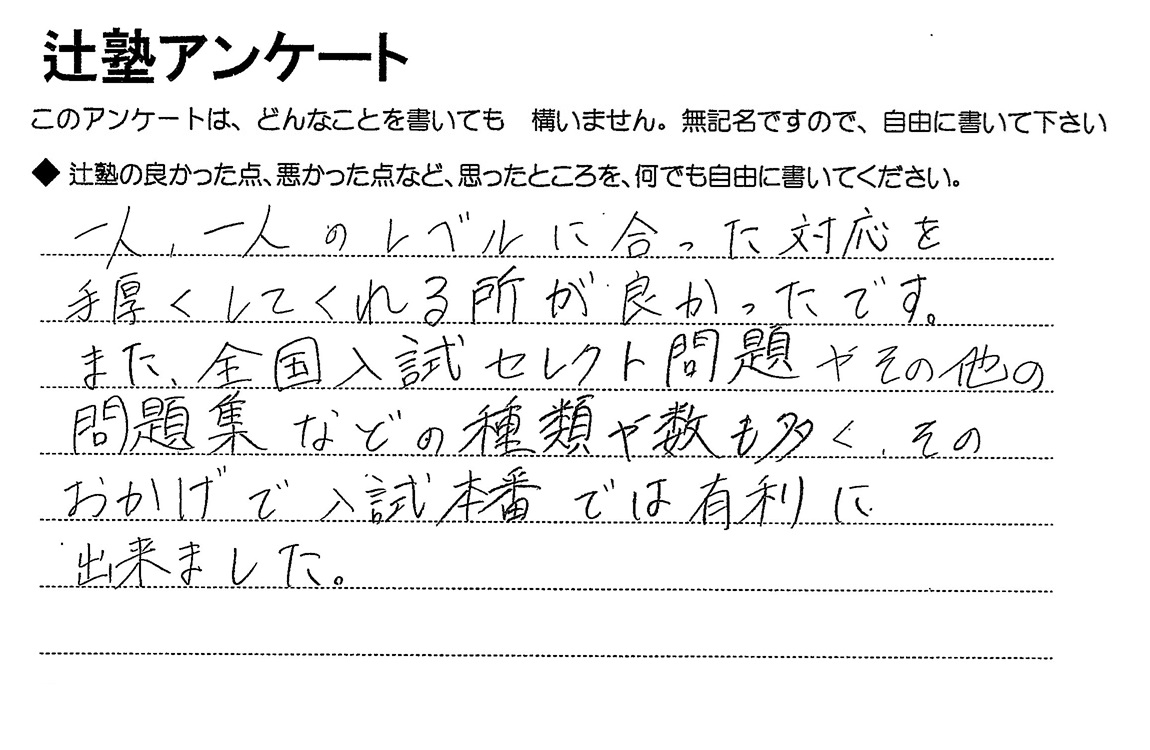 辻塾アンケート
このアンケートは、どんなことを書いても 構いません。無記名ですので、自由に書いて下さい
◆ 辻塾の良かった点、悪かった点など、思ったところを、何でも自由に書いてください。
一人、一人のレベルに合った対応を
手厚くしてくれる所が良かったです。
また、全国入試セレクト問題やその他の
問題集などの種類や数も多く、その
おかげで入試本番では有利に
出来ました。